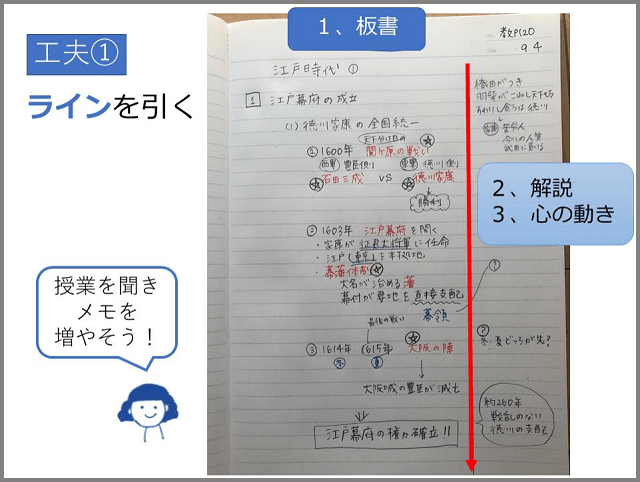 工夫①
ラインを引く
授業を聞き
メモを
増やそう！
1、板書
2、解説
3、心の動き
教P120
94
江戸時代 ①
1 江戸幕府の成立
(1) 徳川家康の全国統一
天下分け目の
① 1600年 関ヶ原の戦い
西軍 豊臣側 東軍 徳川側
石田三成 VS 徳川家康
勝利
② 1603年 江戸幕府を開く
・家康が征夷大将軍に任命
・江戸(東京)を本拠地
・幕藩体制
大名が治める藩
幕府が要地を直接支配
幕領
最後の戦い
③ 1614年 1615年 大阪の陣
冬 夏
大阪城の豊臣が滅亡
江戸幕府の権力確立!!
織田がつき
羽柴がこねし天下もち
すわりし食らうは徳川
?
? 冬・夏どっちが先?
約260年
戦乱のない
徳川の支配